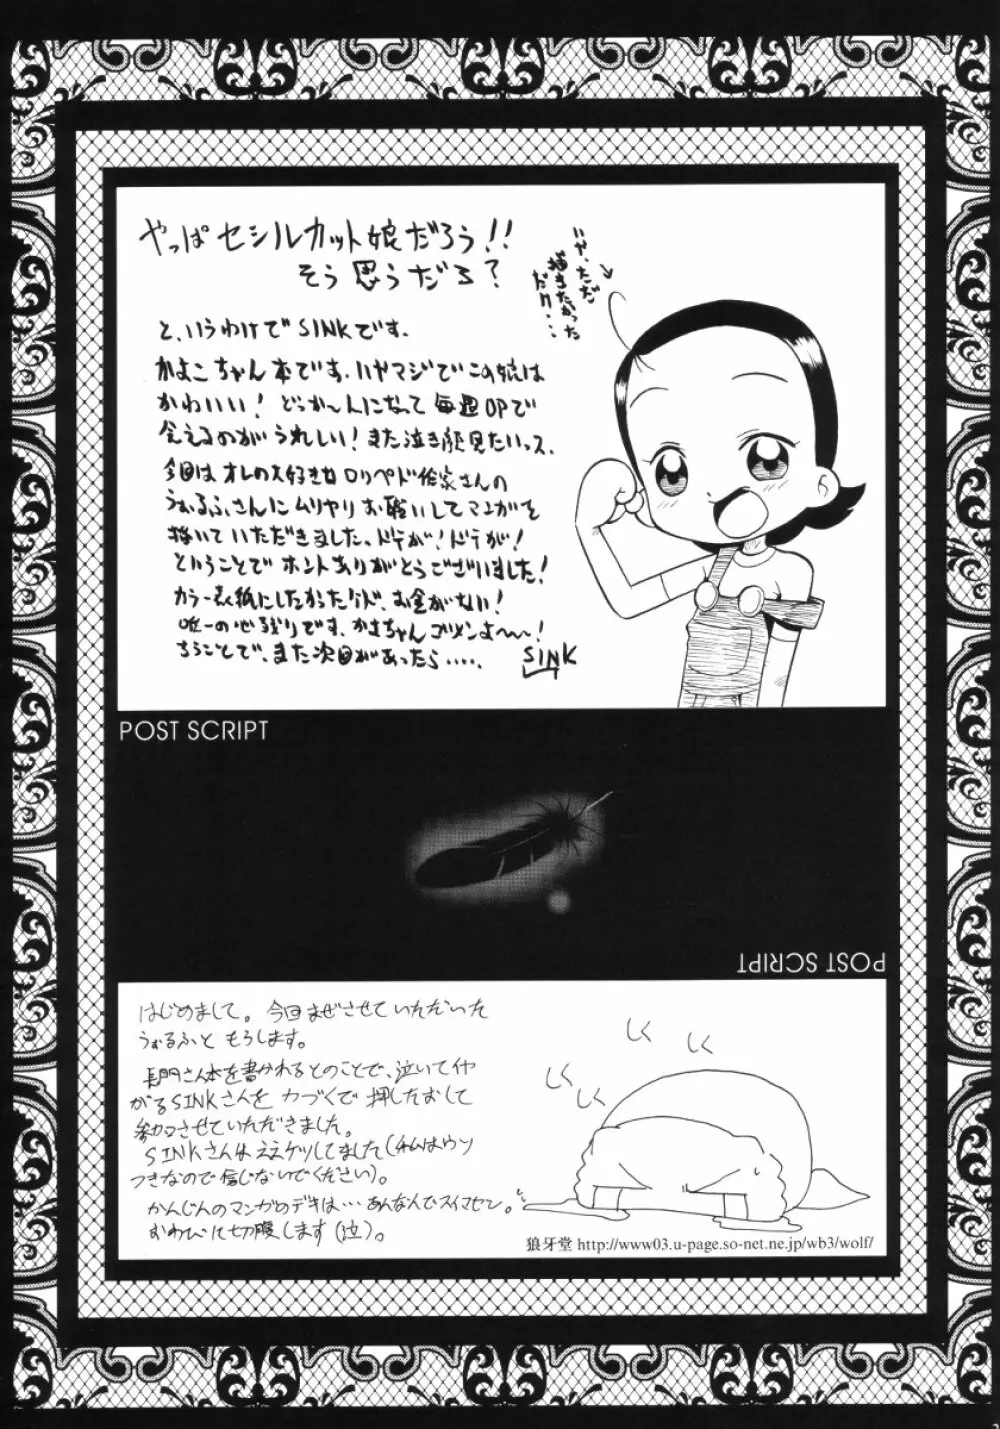 やっぱセシルカット娘だろう!!
そう思うだろ?
いや、ただ
描きたかった
だけ…
と、いうわけでSINKです。
かよこちゃん本です。いやマジでこの娘は
かわいい! どっか〜人になって毎週OPで
会えるのがうれしい! また泣き顔見たいっス、
今回はオレの大好きなロリペド作家さんの
うぉるふさんにムリヤリお願いしてマンガを
描いていただきました。ドテが! ドテが!
ということでホントありがとうございました!
カラー表紙にしたかったけど、お金がない!
唯一の心残りです、かよちゃんゴメンよ〜〜!
ちうことで、また次回があったら‥‥.
SINK
POST SCRIPT
POST SCRIPT
はじめまして。今回まぜさせていただいた
うぉるふと もうします。
長門さん本を書かれるとのことで、泣いてイヤ
がるSINKさんを 力づくで 押したおして
参加させていただきました。
SINKさんは ええケツしてました(私はウソ
つきなので信じないでください)。
かんじんのマンガのデキは…あんなんでスイマセン。
おわびに切腹します(泣)。
しく
しく
しく
しく
狼牙堂 http://www03.u-page.so-net.ne.jp/wb3/wolf/